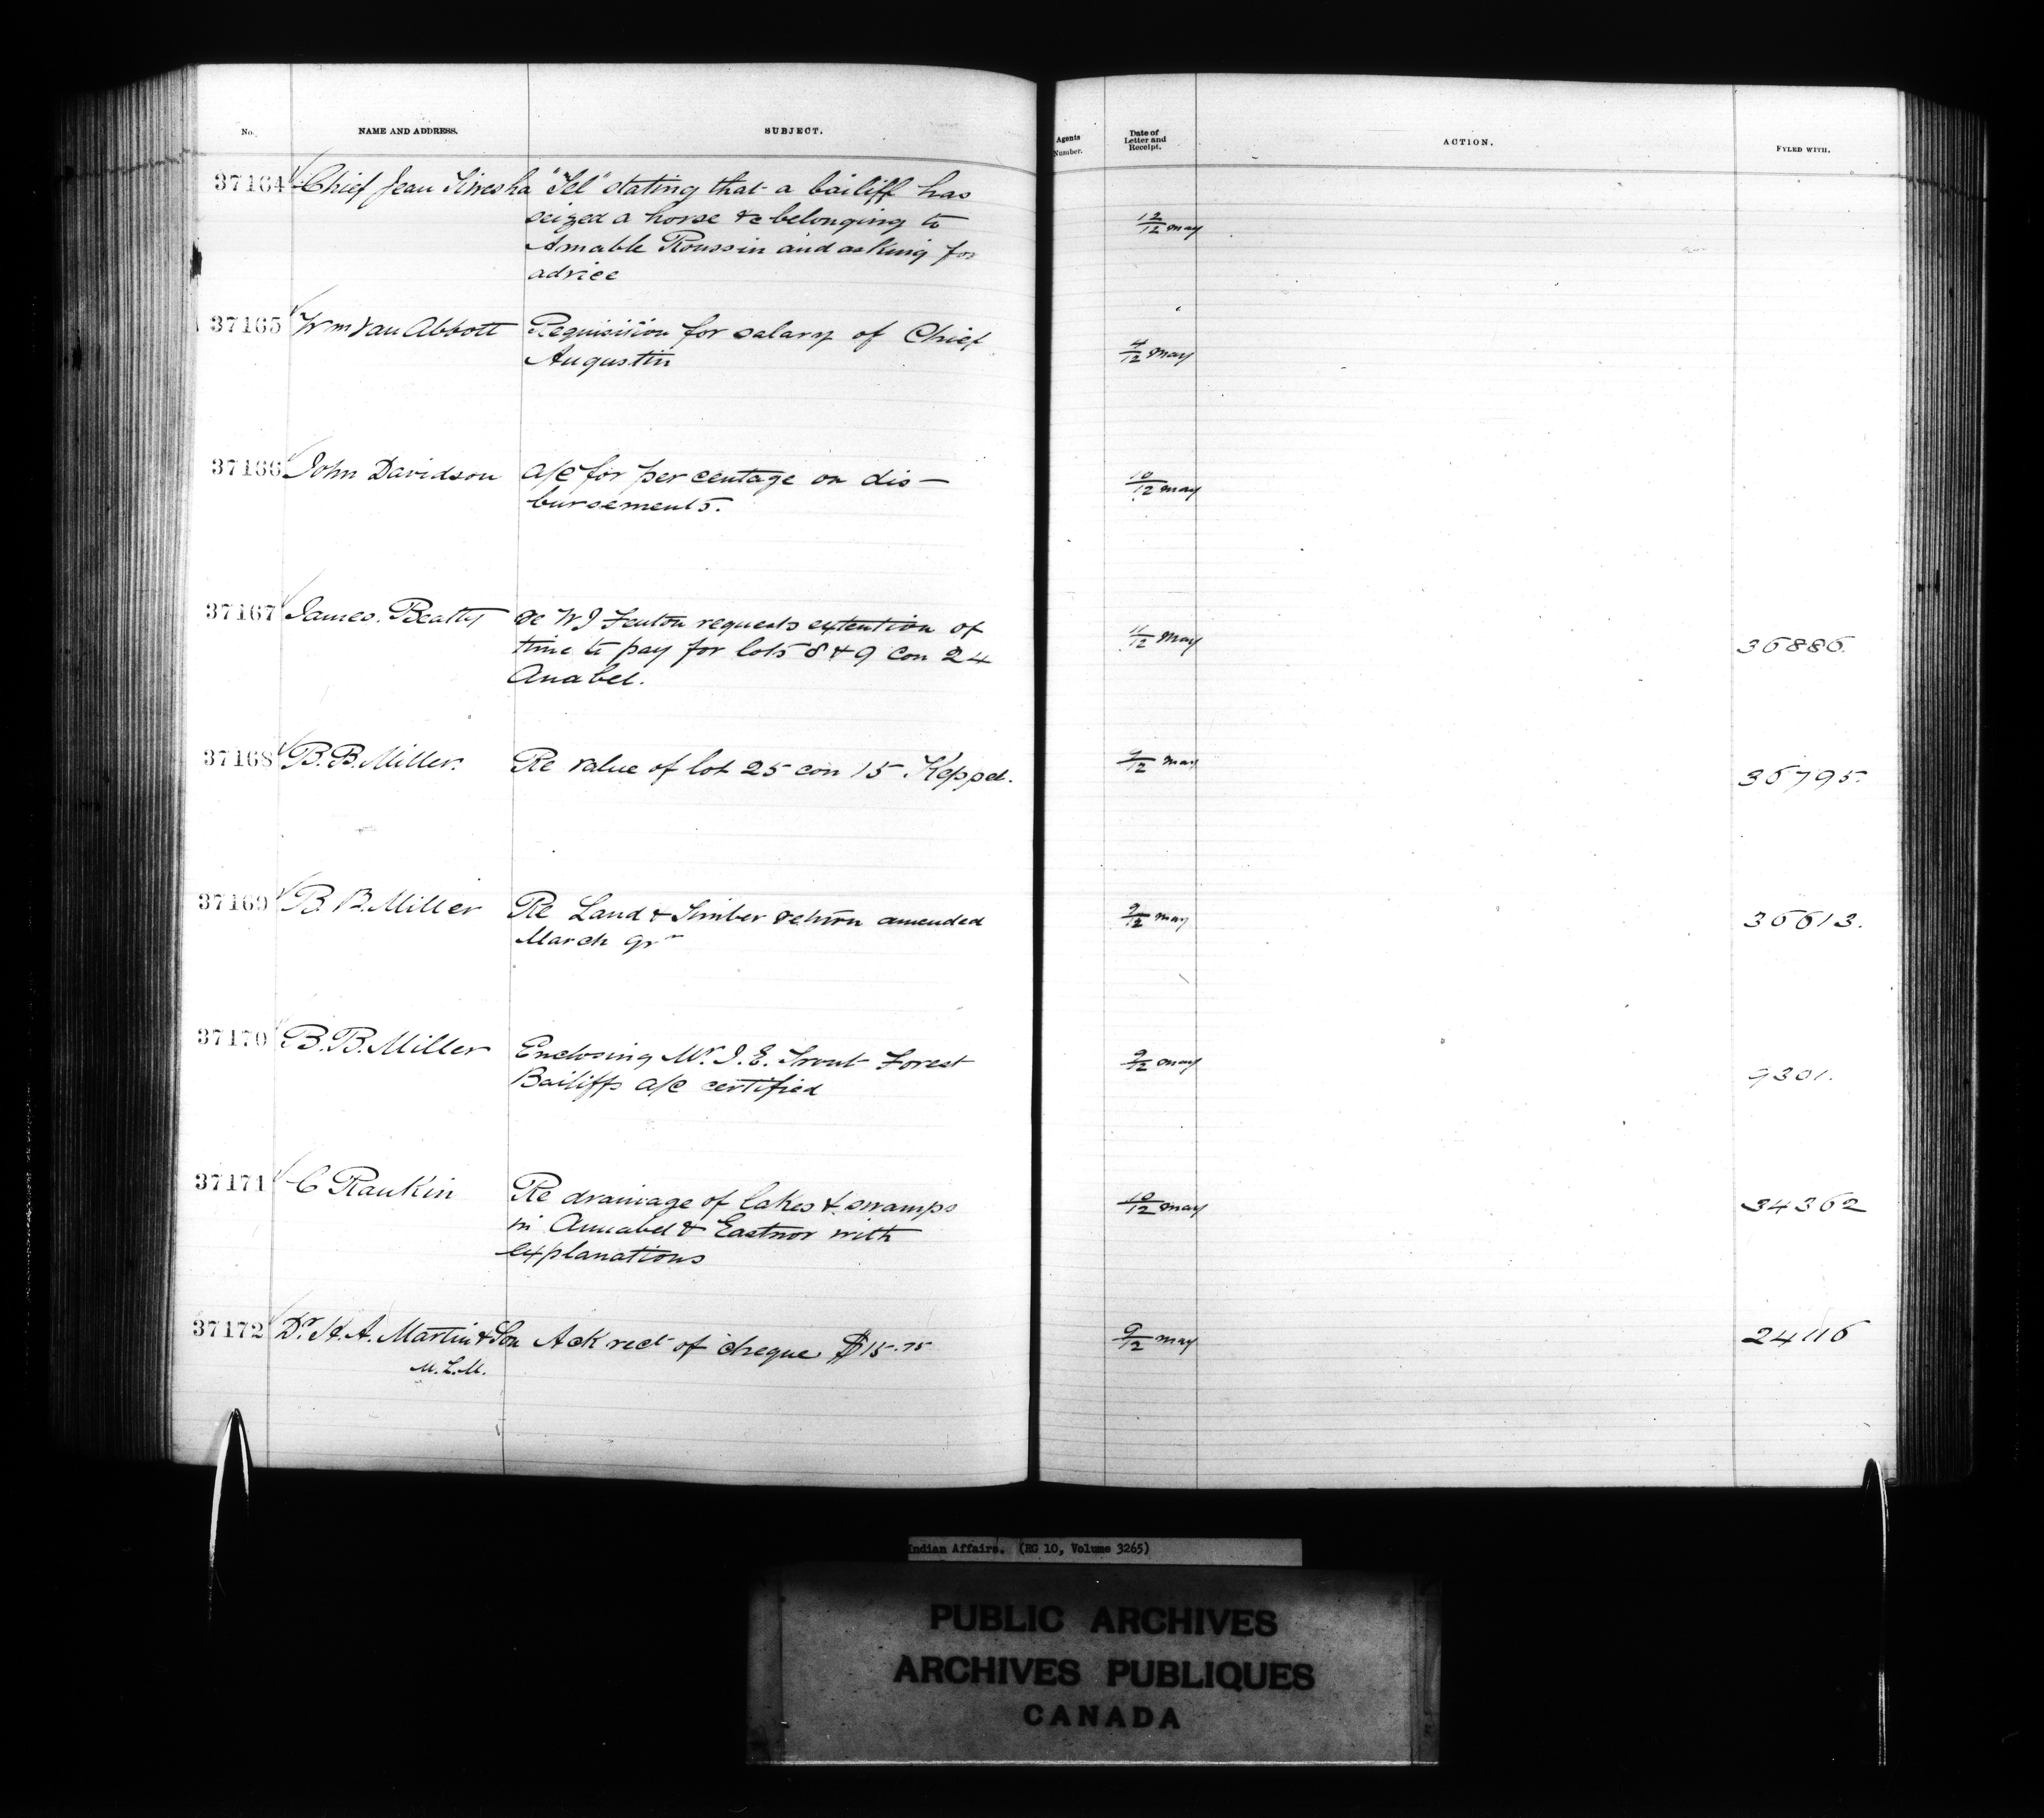 No. NAME AND ADDRESS. SUBJECT. Agents Number. Date of Letter and Receipt. ACTION. FYLED WITH.
37164 Chief Jean "Tel" stating that a bailiff has
seized a horse &c belonging to 12/12 may
Amable Roussin and asking for
advice
37165 Wm Van Abbott Requisition for salary of Chief
Augustin 4/12 may
37166 John Davidson a/c for per centage on dis— 10/12 may
bursements.
37167 James. Beatty W J Fenton requests extention of 11/12 may
time to pay for lots 8 & 9 Con 24 36886.
Anabel.
37168 B. B. Miller. Re value of lot 25 con 15 Keppel. 9/12 may 36795.
37169 B. B. Miller Re Land & Timber return amended 9/12 may 36613.
March qr
37170 B. B. Miller Enclosing Mr. J. E. Trout Forest 9/12 may
Bailiffs a/c certified 9301.
37171 C Rankin Re drainage of lakes & swamps 10/12 may 34362
in Annabel & Eastnor with
explanations
37172 Dr. H. A. Martin & Son Ack rect of cheque $15.75 9/12 may 24116
M. L. M.
Indian Affairs. (RG 10, Volume 3265)
PUBLIC ARCHIVES
ARCHIVES PUBLIQUES
CANADA